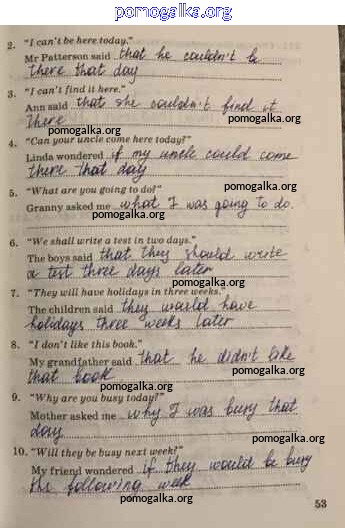 pomogalka.org
2. "I can't be here today."
Mr Patterson said that he couldn't be
there that day
pomogalka.org
3. "I can't find it here."
Ann said that she couldn't find it
there
pomogalka.org
4. "Can your uncle come here today?"
Linda wondered if my uncle could come
there that day
pomogalka.org
5. "What are you going to do?"
Granny asked me what I was going to do.
pomogalka.org
6. "We shall write a test in two days."
The boys said that they should write
a test three days later
pomogalka.org
7. "They will have holidays in three weeks."
The children said they would have
holidays three weeks later
pomogalka.org
8. "I don't like this book."
My grandfather said that he didn't like
that book
pomogalka.org
9. "Why are you busy today?"
Mother asked me why I was busy that
day
pomogalka.org
10. "Will they be busy next week?"
My friend wondered if they would be busy
the following week
pomogalka.org
53
pomogalka.org